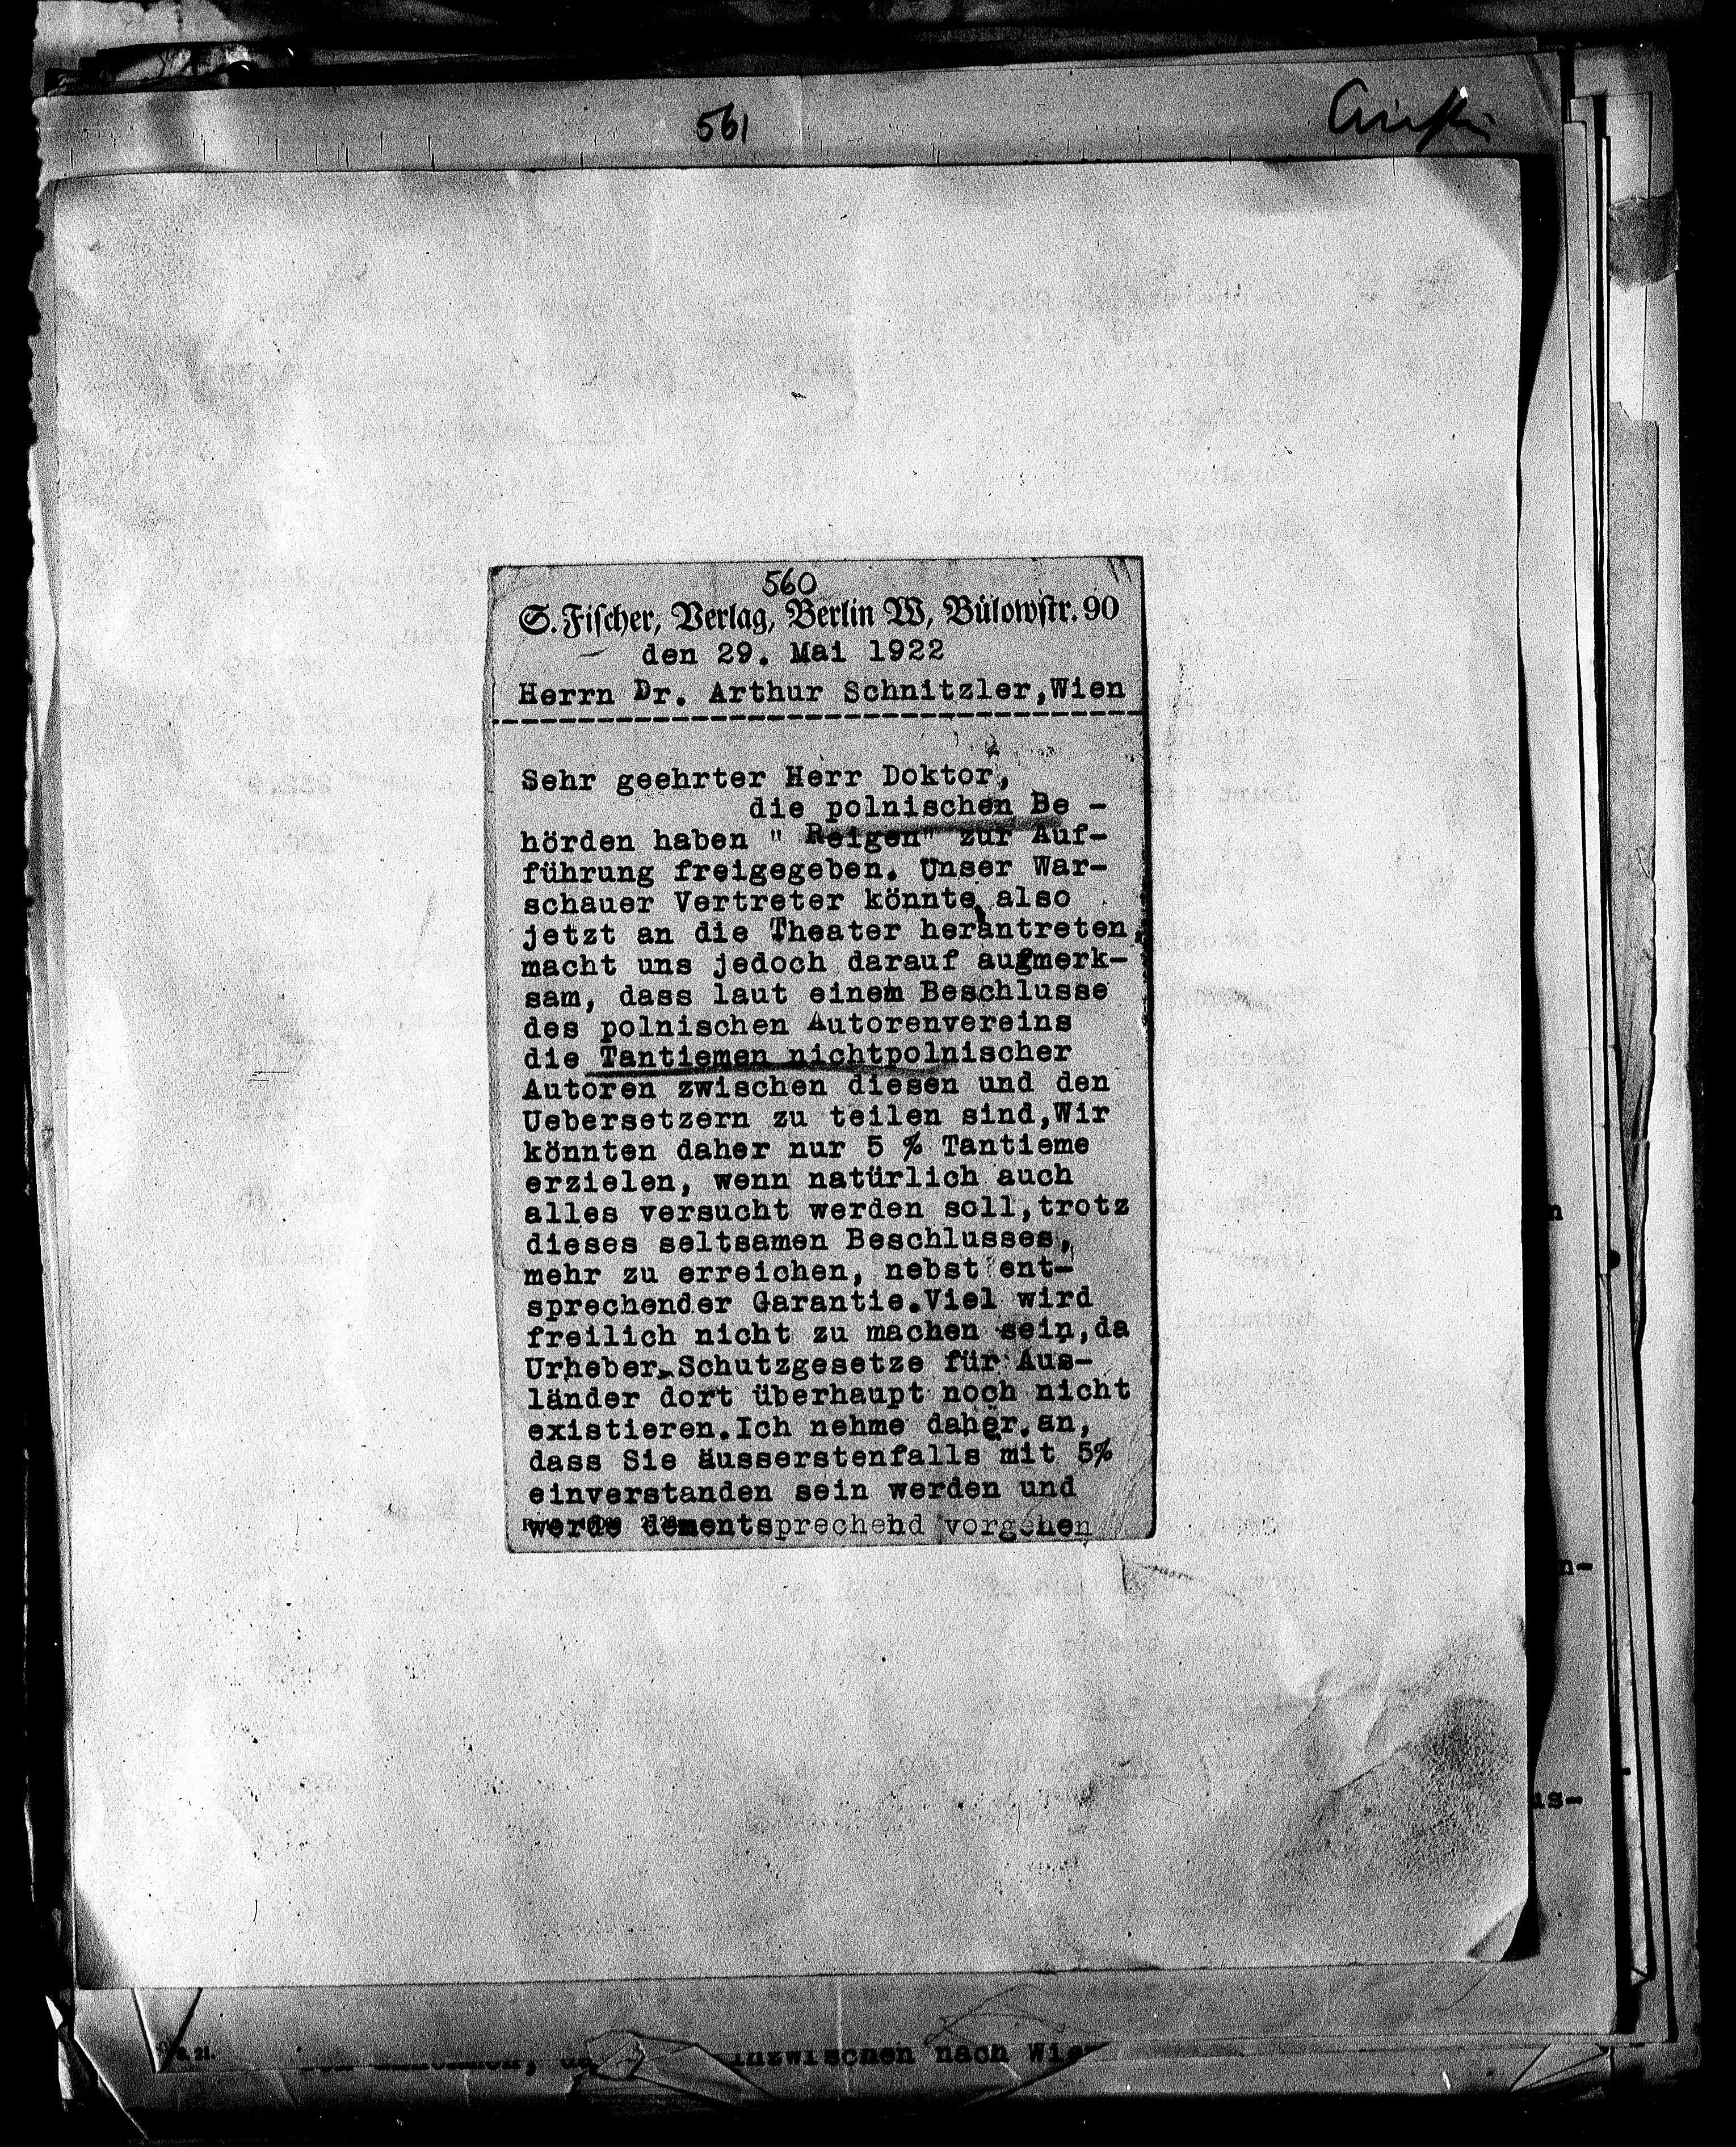 561
560
S. Fischer, Verlag, Berlin W, Bülowstr. 90
den 29. Mai 1922
Herrn Dr. Arthur Schnitzler,Wien
Sehr geehrter Herr Doktor,
die polnischen Be -
hörden haben " Reigen" zur Auf-
führung freigegeben. Unser War-
schauer Vertreter könnte also
jetzt an die Theater herantreten,
macht uns jedoch darauf augmerk-
sam, dass laut einem Beschlusse
des polnischen Autorenvereins
die Tantiemen nichtpolnischer
Autoren zwischen diesen und den
Uebersetzern zu teilen sind,Wir
könnten daher nur 5 % Tantieme
erzielen, wenn natürlich auch
alles versucht werden soll,trotz
dieses seltsamen Beschlusses,
mehr zu erreichen, nebst ent-
sprechender Garantie.Viel wird
freilich nicht zu machen sein,da
Urheber-Schutzgesetze für Aus-
länder dort überhaupt noch nicht
existieren.Ich nehme daher an,
dass Sie äusserstenfalls mit 5%
einverstanden sein werden und
werde dementsprechend vorgehen
n
n-
us-
inzwischen nach Wie